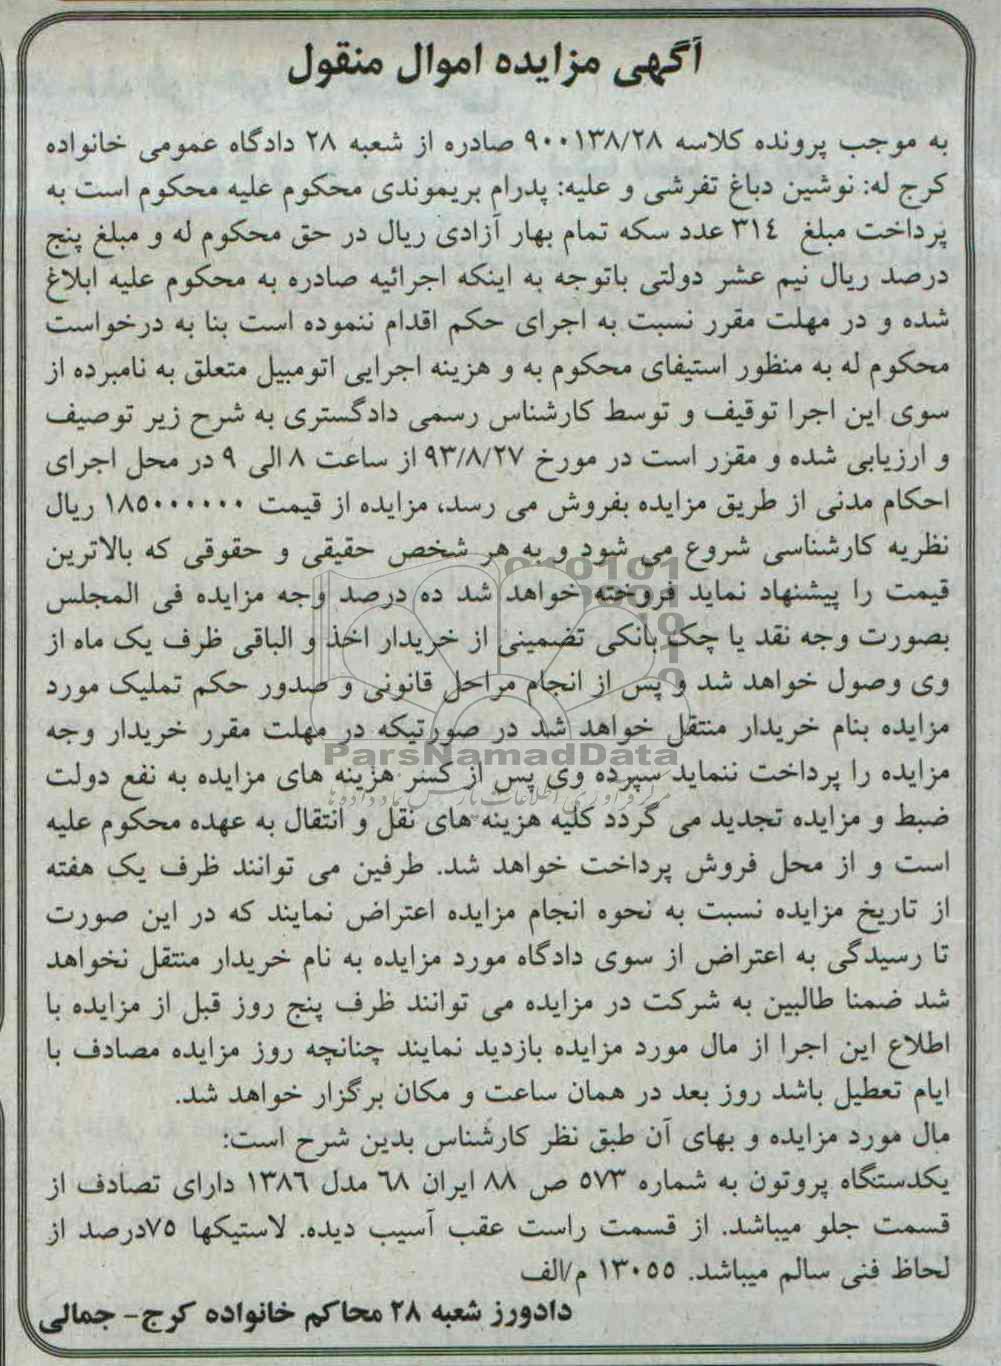 آگهی مزایده اموال منقول
به موجب پرونده کلاسه ۹۰۰۱۳۸/۲۸ صادره از شعبه ۲۸ دادگاه عمومی خانواده
کرج له: نوشین دباغ تفرشی و علیه: پدرام بریموندی محکوم علیه محکوم است به
پرداخت مبلغ ۳۱٤ عدد سکه تمام بهار آزادی ریال در حق محکوم له و مبلغ پنج
درصد ریال نیم عشر دولتی باتوجه به اینکه اجرائیه صادره به محکوم علیه ابلاغ
شده و در مهلت مقرر نسبت به اجرای حکم اقدام ننموده است بنا به درخواست
محکوم له به منظور استیفای محکوم به و هزینه اجرایی اتومبیل متعلق به نامبرده از
سوی این اجرا توقیف و توسط کارشناس رسمی دادگستری به شرح زیر توصیف
و ارزیابی شده و مقزر است در مورخ ۹۳/۸/۲۷ از ساعت ۸ الی ۹ در محل اجرای
احکام مدنی از طریق مزایده بفروش می رسد، مزایده از قیمت ۱۸۵۰۰۰۰۰۰ ریال
نظریه کارشناسی شروع می شود و به هر شخص حقیقی و حقوقی که بالاترین
قیمت را پیشنهاد نماید فروخته خواهد شد ده درصد وجه مزایده فی المجلس
بصورت وجه نقد یا چک بانکی تضمینی از خریدار اخذ و الباقی ظرف یک ماه از
وی وصول خواهد شد و پس از انجام مراحل قانونی و صدور حکم تملیک مورد
مزایده بنام خریدار منتقل خواهد شد در صورتیکه در مهلت مقرر خریدار وجه
ParsNamadData
مزایده را پرداخت ننماید سپرده وی پس از کسر هزینه های مزایده به نفع دولت
ضبط و مزایده تجدید می گردد کلیه هزینه های نقل و انتقال به عهده محکوم علیه
است و از محل فروش پرداخت خواهد شد. طرفین می توانند ظرف یک هفته
از تاریخ مزایده نسبت به نحوه انجام مزایده اعتراض نمایند که در این صورت
تا رسیدگی به اعتراض از سوی دادگاه مورد مزایده به نام خریدار منتقل نخواهد
شد ضمنا طالبین به شرکت در مزایده می توانند ظرف پنج روز قبل از مزایده با
اطلاع این اجرا از مال مورد مزایده بازدید نمایند چنانچه روز مزایده مصادف با
ایام تعطیل باشد روز بعد در همان ساعت و مکان برگزار خواهد شد.
مال مورد مزایده و بهای آن طبق نظر کارشناس بدین شرح است:
یکدستگاه پروتون به شماره ۵۷۳ ص ۸۸ ایران ٦۸ مدل ۱۳۸٦ دارای تصادف از
قسمت جلو میباشد. از قسمت راست عقب آسیب دیده. لاستیکها ۷۵درصد از
لحاظ فنی سالم میباشد. ۱۳۰۵۵ م/الف
دادورز شعبه ۲۸ محاکم خانواده کرج- جمالی